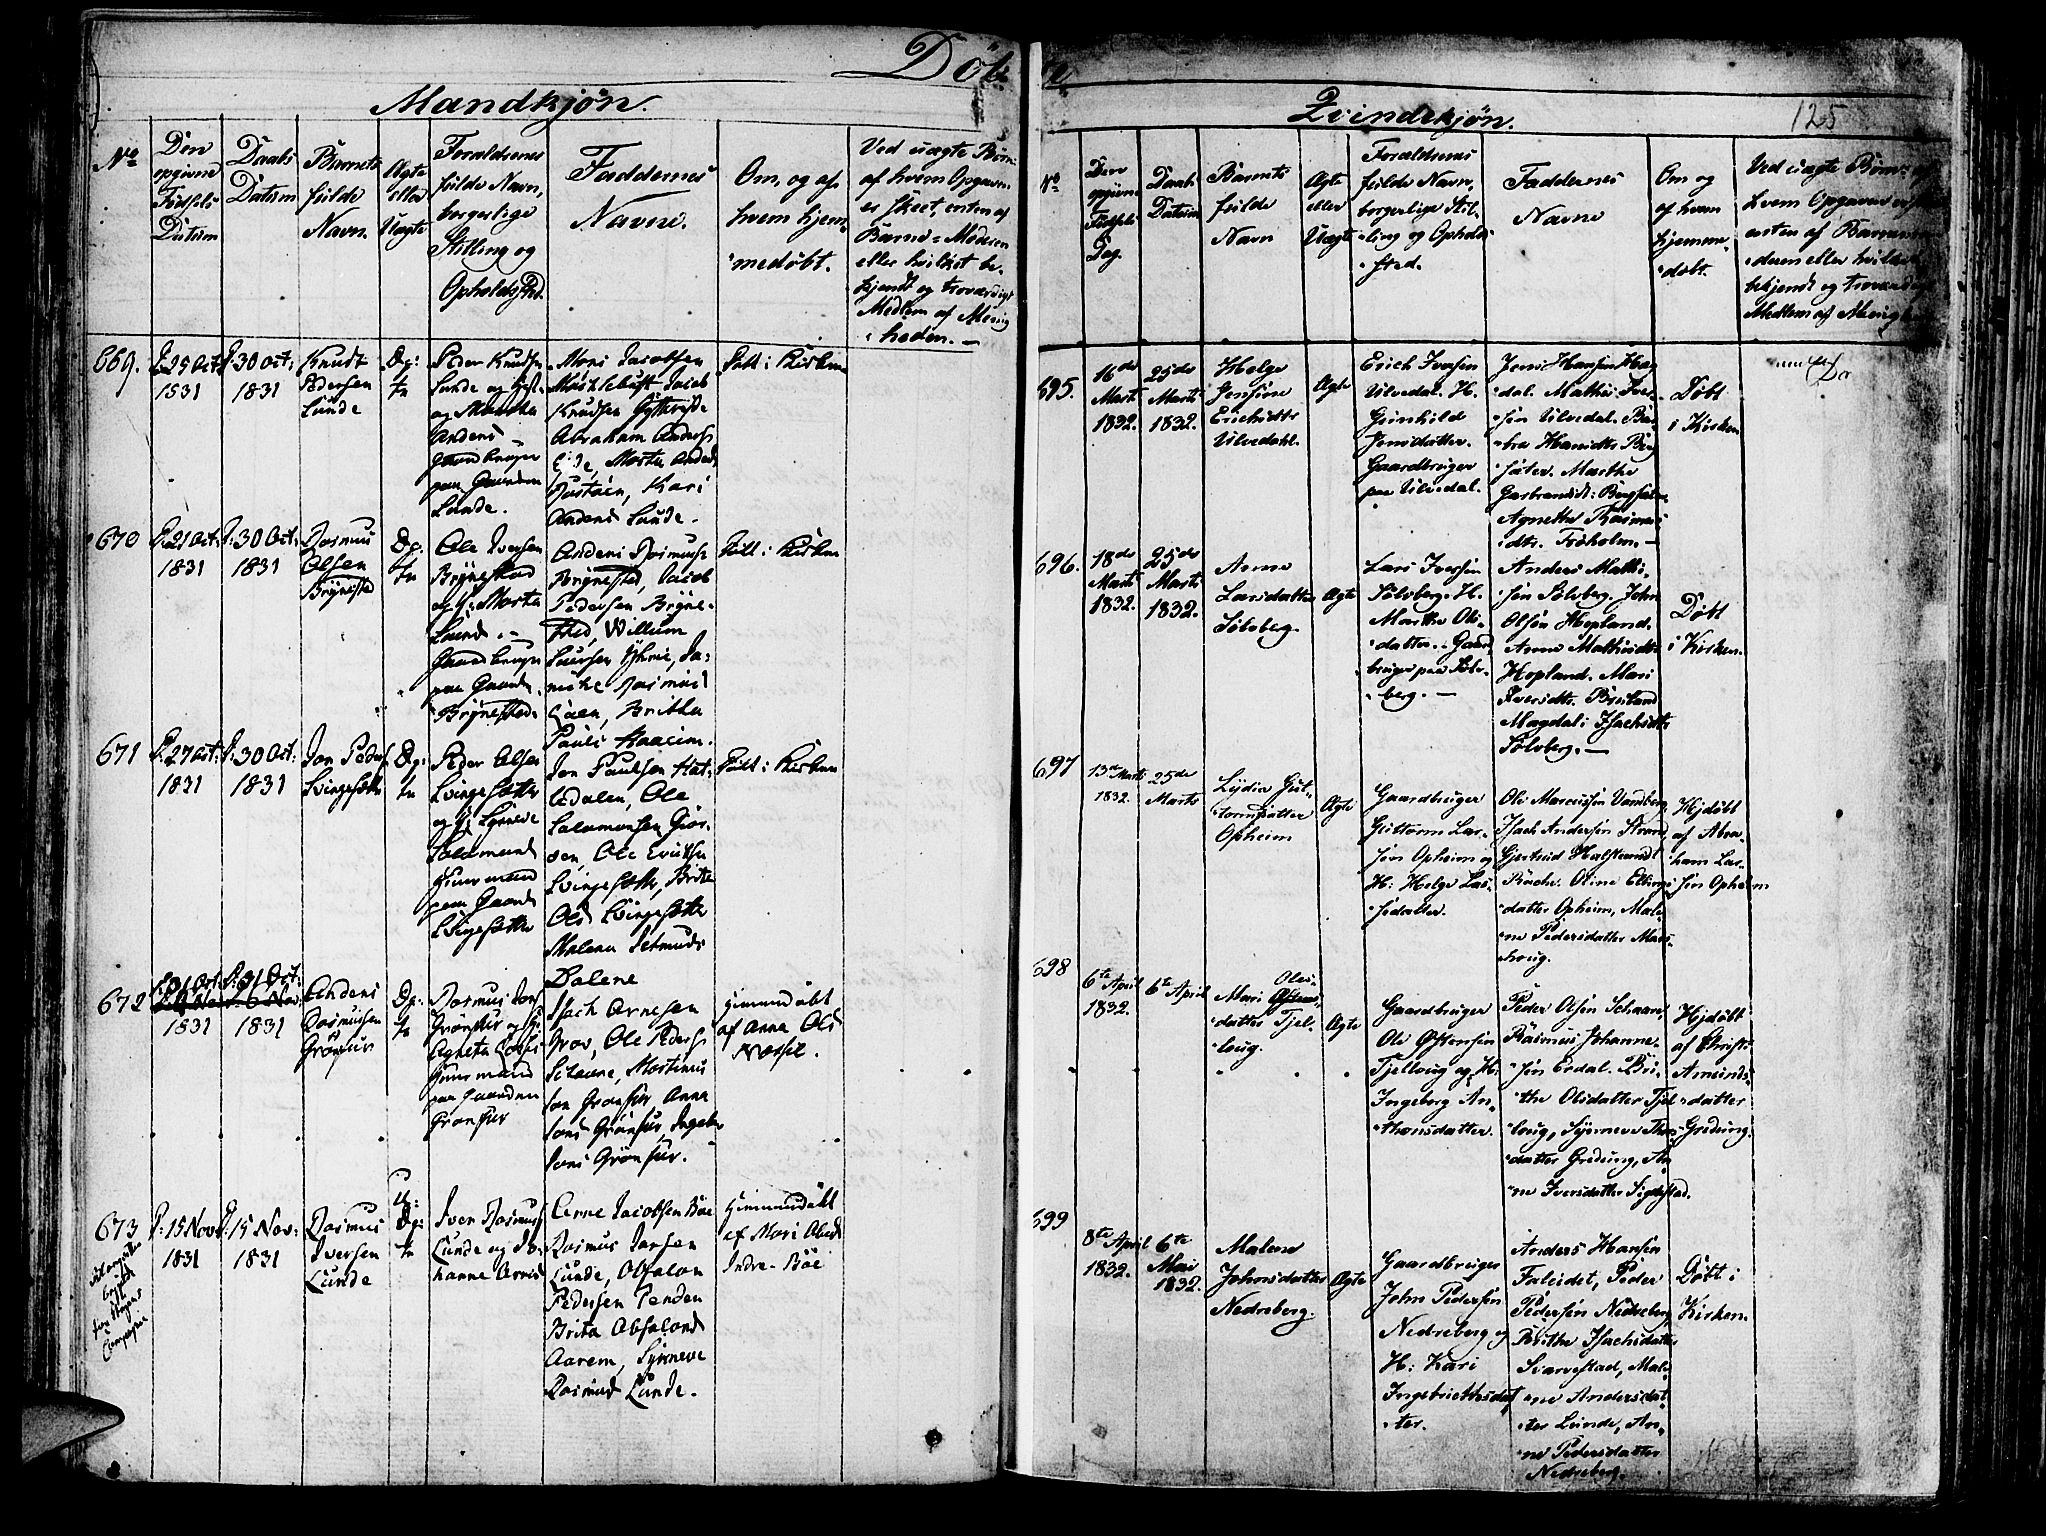 Døbte
Mandkjøn.
No
Den
opgivne
Fødsels
Datum
Daabs
Datum
Barnets
fulde
Navn.
Ægte
eller
Uægte
Forældrenes
fulde Navn,
borgerlige
Stilling og
Opholdssted.
Faddernes
Navne.
Om, og af
hvem hjem-
medøbt.
Ved uægte Børn:
af hvem Opgaven
er skeet, enten af
Barne-Moderen
eller hvilket be-
kjendt og troværdigt
Medlem af Menig-
heden.
669.
25 Oct:
1831
30 Oct:
1831
Knudt
Pedersen
Lunde
Peder Knudsen
Lunde og
og Martha
Anders
Gaardbruger
paa Gaarden
Lunde.
Mons Jacobsen
Myklebust Jacob
Knudsen
Abraham Anders
Eide, Marta Anders
Kari
Anders Lunde.
Døbt i Kirken
670
21 Oct:
1831
30 Oct:
1831
Rasmus
Olsen
Brynested
Ole Iversen
Brynestad
og H: Marta
Gaardbruger
paa Gaarden
Brynested.
Anders Rasmus
Brynested, Jacob
Pedersen Bryne-
sted, Willum
Rasmus
Britha
Pauls Haaheim.
Døbt i Kirken
671
27 Oct:
1831
30 Oct:
1831
Jon Peders
Svingesætter
Peder Olsen
Svingesætter
og H: Synneve
Salamons
Huusmand
paa Gaarden
Svingesætter
Jon Paulsen Hat-
ledalen, Ole
Salamonsen Gior-
ven, Ole Erichsen
Svingesætter, Brita
Ols Svingesætter
Malena Jetmunds
Dalene
Døbt i Kirken
672
31 Oct:
1831
31 Oct:
1831
Anders
Rasmussen
Grønfur
Rasmus Jons
Grønfur og H:
Agneta
Huusmand
paa Gaarden
Grønfur
Isach Arnesen
Grov, Ole Peders
Martinus
Jon Grønfur Anna
Jons Grønfur Ingebor
Jons Grønfur.
Hjemmedøbt
af Anna Ols
673
15 Nov:
1831
15 Nov:
1831
Rasmus
Iversen
Lunde
Iver Rasmus
Lunde og Jo-
hanne Arnes
Arne Jacobsen Bøe
Rasmus Jonsen
Lunde, Absalon
Pedersen Tenden
Brita Absalons
Aarem, Synneve
Rasmus Lunde.
Hjemmedøbt
af Mari Abels
Indre-Bøe
Qvindekjøn.
125
No
Den
opgivne
Fødsels
Dag.
Daabs
Datum
Barnets
fulde
Navn
Ægte
eller
Uægte
Forældrenes
fulde Navn,
borgerlige Stil-
ling og Opholds-
sted.
Faddernes
Navne
Om og
af hvem
hjemme-
døbt.
Ved uægte Børn: af
hvem Opgaven er skeet
enten af Barnemo-
deren eller hvilket
bekjendt og troværdigt
Medlem af Menigh
695.
16de
Marts
1832.
25de
Marts
1832.
Helge
Jensine
Erichsdtr
Ulvedahl.
Ægte
Erich Iversen
Ulvedal. H.
Gunhild
Jensdatter.
Gaardbruger
paa Ulvedal.
Jens Hansen Hau-
dal. Mathis Iver-
sen Ulvedal. Bar-
bra Hansdtr Berg-
sæter. Marthe
Garbrandsdtr: Bergsæter.
Agnethe Rasmus-
dtr. Froholm.
Døbt
i Kirken
696.
18de
Marts
1832.
25de
Marts
1832.
Anne
Larsdatter
Sølvberg.
Ægte
Lars Iversen
Sølvberg. H.
Marthe Ols-
datter. Gaard-
bruger paa Sølv-
berg.
Anders Mathi-
sen Sølvberg. John
Olsen Hopland.
Anne Mathisdtr
Hopland. Mari
Iversdtr. Breiland
Magdali Isachsdtr
Sølvberg.
Døbt
i Kirken.
697
13de Marts
1832.
25de
Marts
Lydia Gut-
tormsdatter
Opheim
Ægte
Gaardbruger
Guttorm Lar-
sen Opheim og
H: Helge Las-
sedatter.
Ole Marcussen Vamberg
Isach Andersen Strand
Gjertrud Halstensdtr
Oline Ellings-
datter Opheim, Male-
ne Pedersdatter Mars-
houg.
Hjdøbt
af Abra-
ham Lar-
sen Opheim
698
6te April
1832.
6te April
Mari Ols-
datter Tjel-
loug.
Ægte
Gaardbruger
Ole Østensen
Tjelloug og H:
Ingeborg An-
thonsdatter.
Peder Olsen
Rasmus Johanne-
sen Erdal. Bri-
the Olsdatter Tjel-
loug, Synneve Thos-
datter Gredung, An-
ne Iversdatter Sigdestad.
Hjdøbt
af Christi
Amunds-
datter
Gredung.
699
8te April
1832.
6te
Mai
1832.
Malene
Johnsdatter
Nedreberg.
Ægte
Gaardbruger
John Pedersen
Nedreberg og
H: Kari
Ingebrichtsdat-
ter.
Anders Hansen
Faleidet, Peder
Pedersen Nedreberg
Brithe Isachsdatter
Svarvestad, Male-
ne Andersdat-
ter Lunde, An-
ne Pedersdatter
Nedreberg.
Døbt i
Kirken.